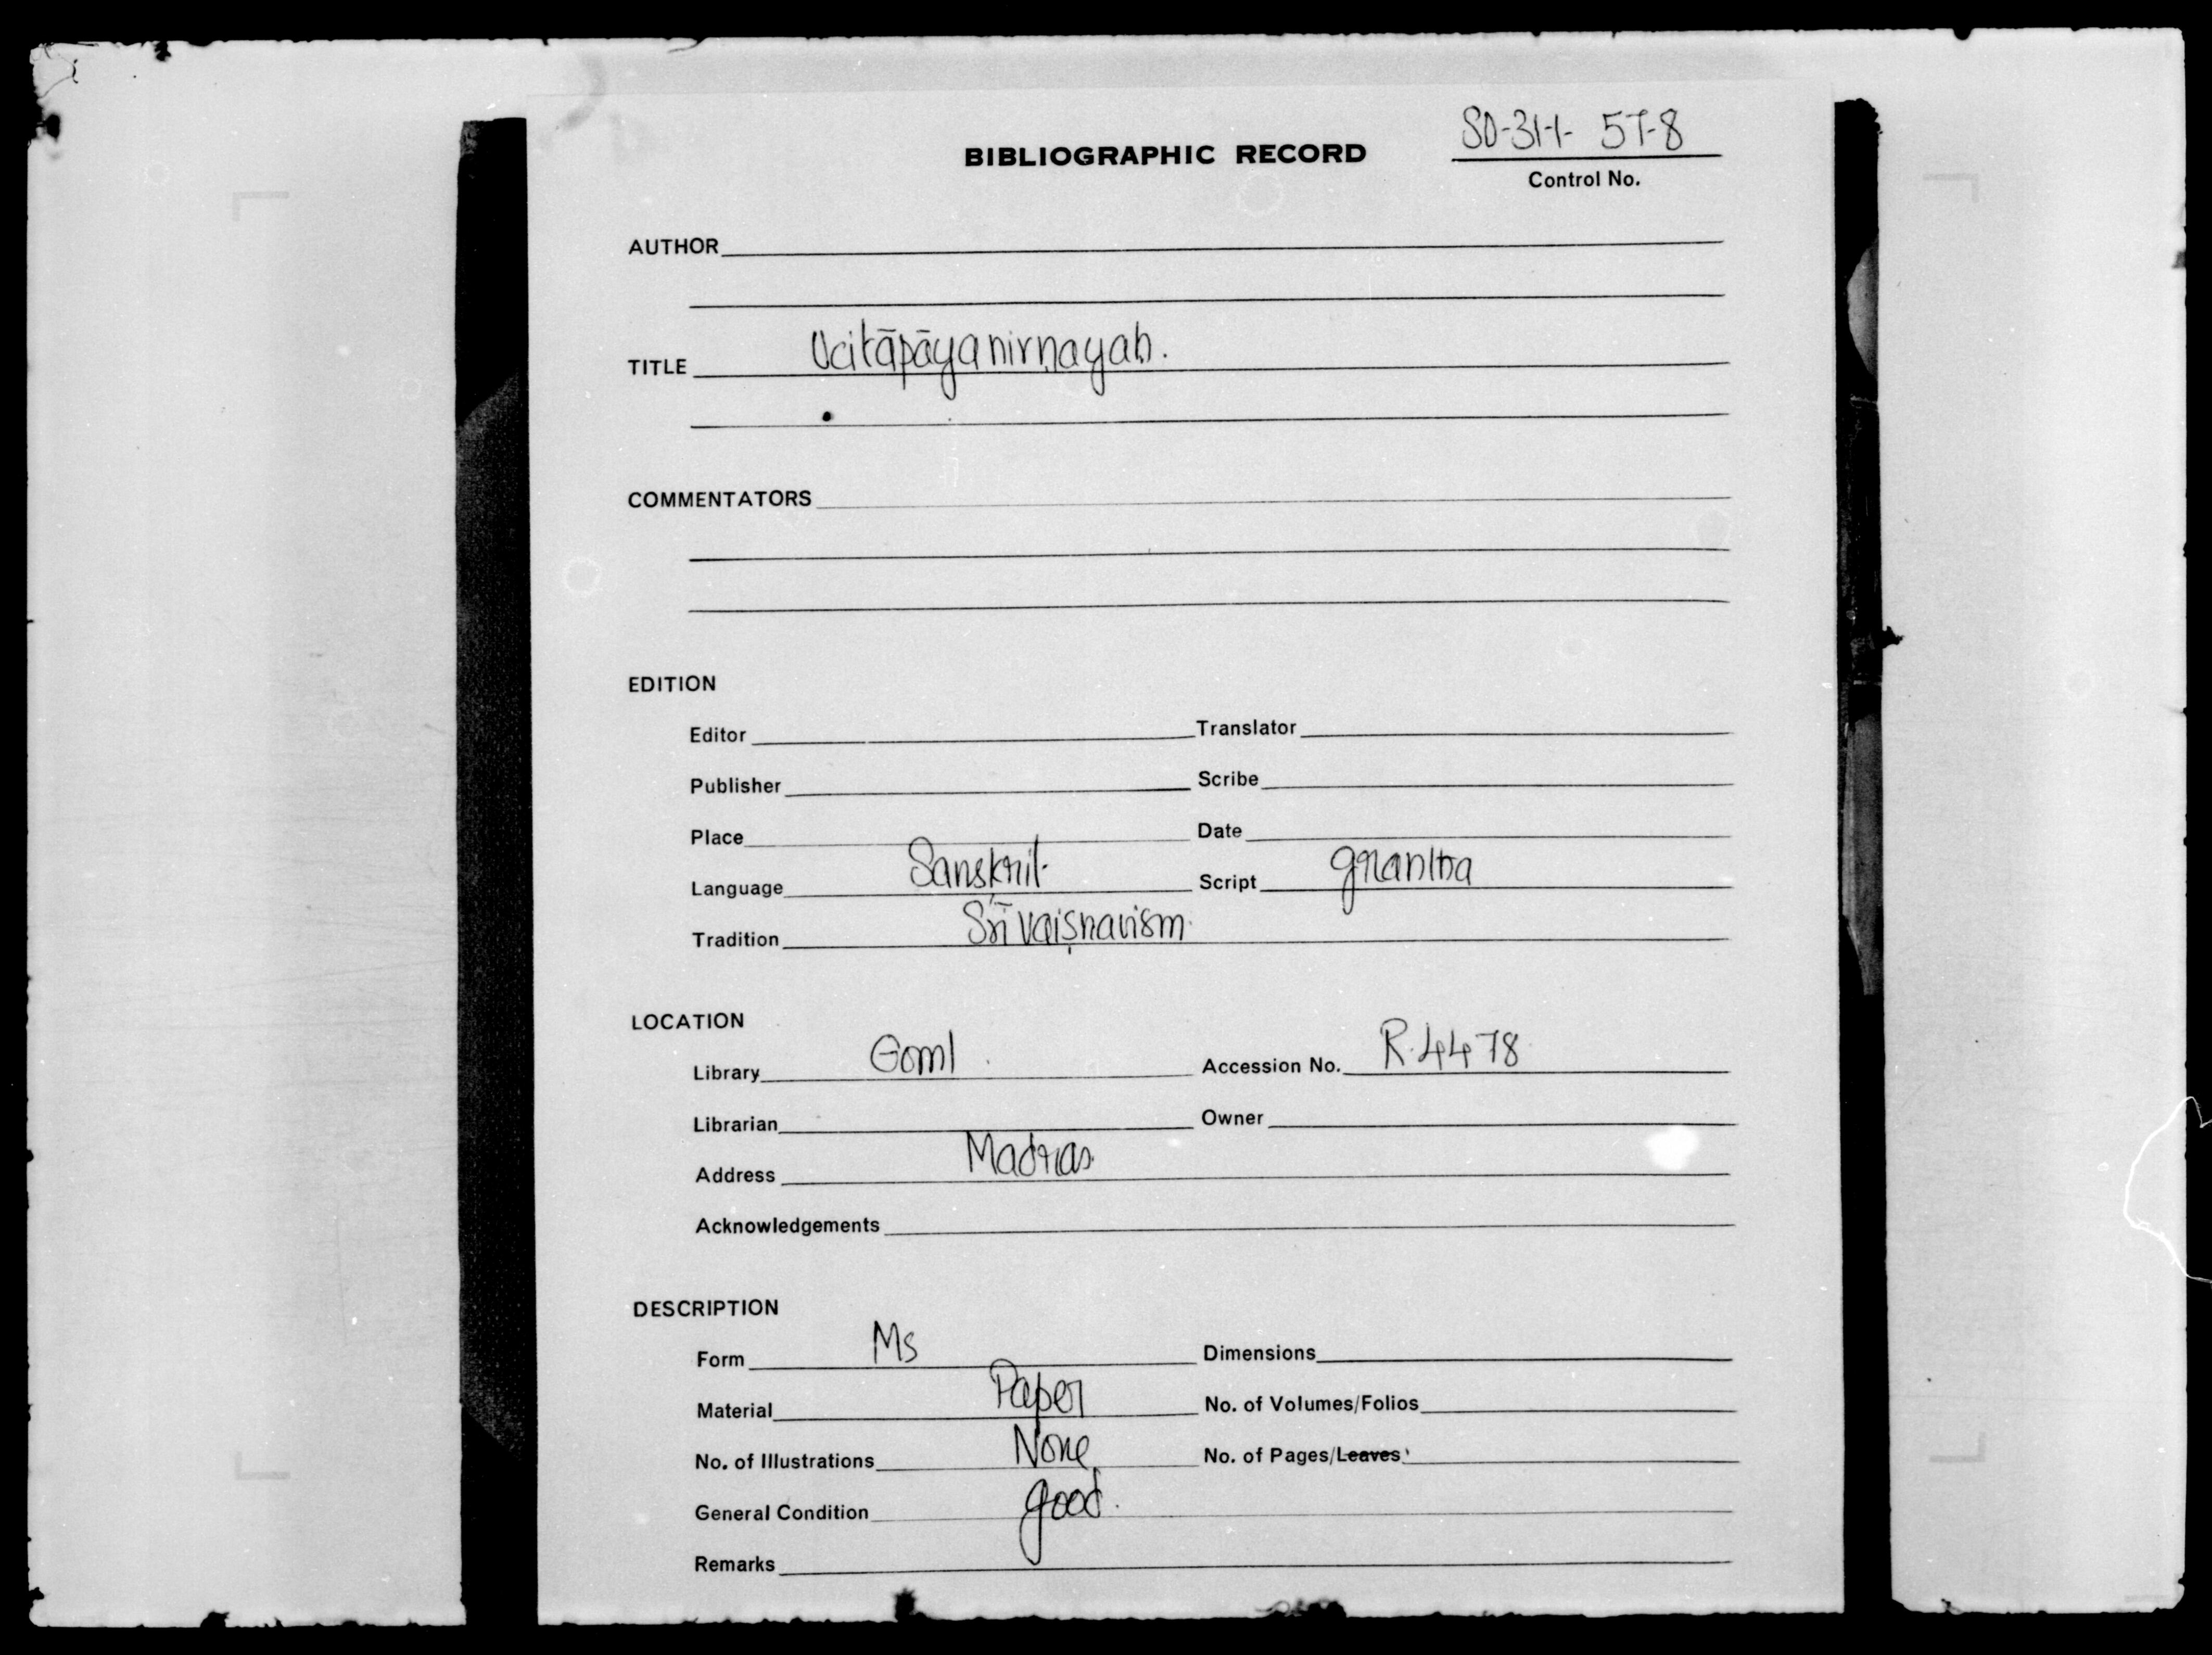 SD-311- 57-8
BIBLIOGRAPHIC RECORD
Control No.
AUTHOR
TITLE Ucitāpāyanirṇayaḥ.
COMMENTATORS
EDITION
Editor Translator
Publisher Scribe
Place Date
Language Sanskrit Script grantha
Tradition Śrī Vaiṣnavism
LOCATION
Library Goml. Accession No. R.4478
Librarian Owner
Address Madras
Acknowledgements
DESCRIPTION
Form Ms Dimensions
Material Paper No. of Volumes/Folios
No. of Illustrations None No. of Pages/Leaves
General Condition good.
Remarks